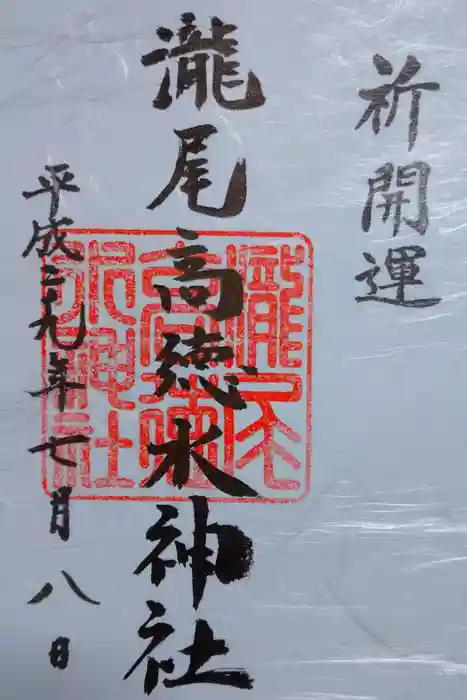 祈開運
瀧尾高徳水神社
平成二九年七月八日
瀧尾
高徳
水神社